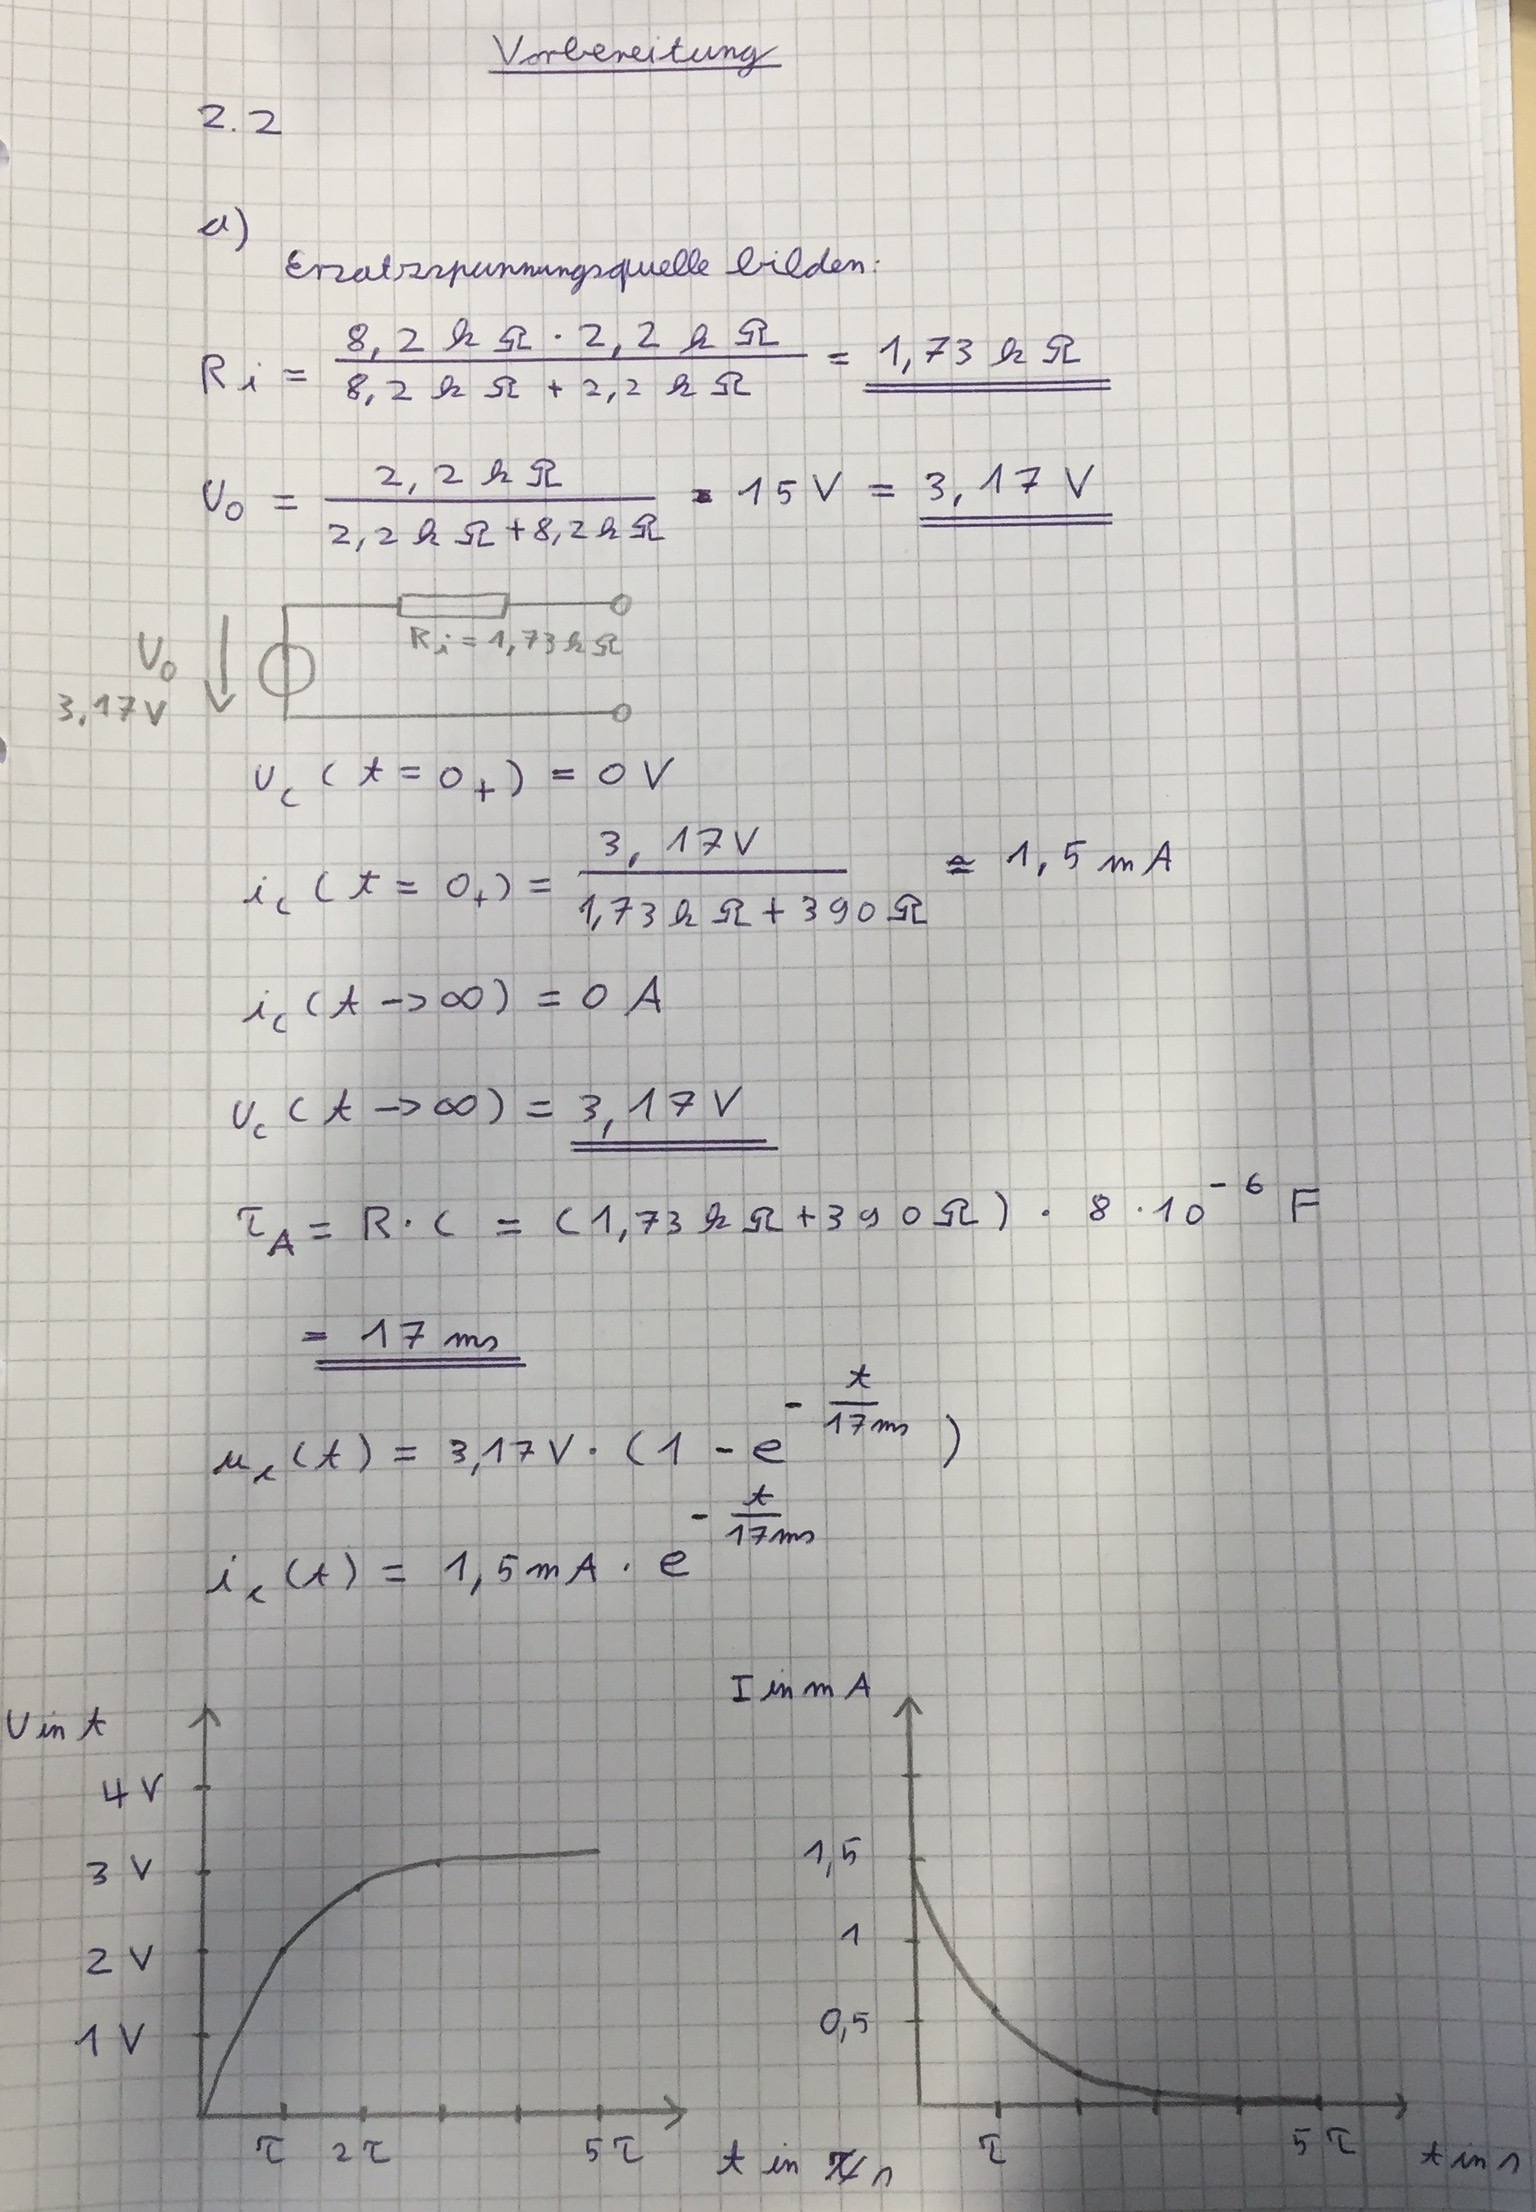 Vorbereitung
2.2
a)
Ersatzspannungsquelle bilden:
Ri = (8,2 kΩ · 2,2 kΩ) / (8,2 kΩ + 2,2 kΩ) = 1,73 kΩ
U₀ = (2,2 kΩ) / (2,2 kΩ + 8,2 kΩ) · 15 V = 3,17 V
Ri = 1,73 kΩ
U₀
3,17 V
Uc (t = 0+) = 0 V
ic (t = 0+) = (3,17 V) / (1,73 kΩ + 390 Ω) ≈ 1,5 mA
ic (t -> ∞) = 0 A
Uc (t -> ∞) = 3,17 V
τA = R · C = (1,73 kΩ + 390 Ω) · 8 · 10⁻⁶ F
= 17 ms
uc(t) = 3,17 V · (1 - e^(-t/17ms))
ic(t) = 1,5 mA · e^(-t/17ms)
U in t
4 V
3 V
2 V
1 V
τ 2τ 5τ
t in s
I in mA
1,5
1
0,5
τ 5τ
t in s